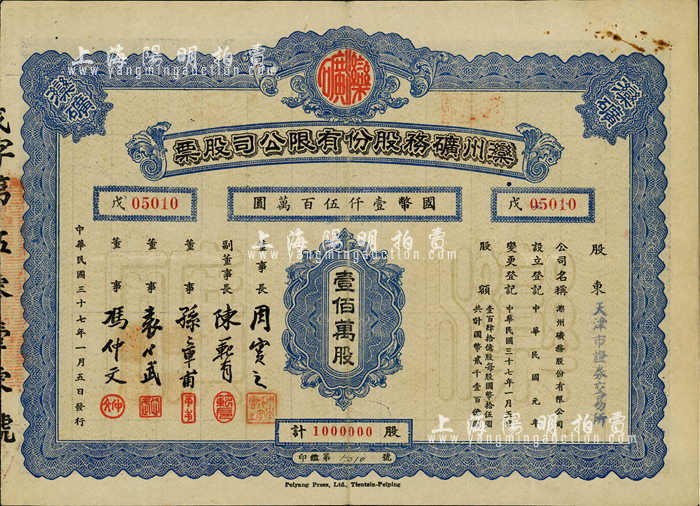 上海陽明拍賣
www.yangmingauction.com
灤礦
灤礦
灤礦
灤州礦務股份有限公司股票
戊 05010
國幣壹仟伍百萬圓
戊 05010
股東 天津市證券交易所
公司名稱 灤州礦務股份有限公司
設立登記 中華民國元年
變更登記 中華民國三十七年一月五
股額 壹百肆拾億股每股國幣拾伍圓
共計國幣貳千壹百億
壹佰萬股
董事長 周實之
副董事長 陳
董事 孫章甫
董事 袁
董事 馮仲文
中華民國三十七年一月五日發行
計 1000000 股
印鑑第 號
Peiyang Press, Ltd., Tientsin-Peiping
上海陽明拍賣
www.yangmingauction.com
上海陽明拍賣
www.yangmingauction.com